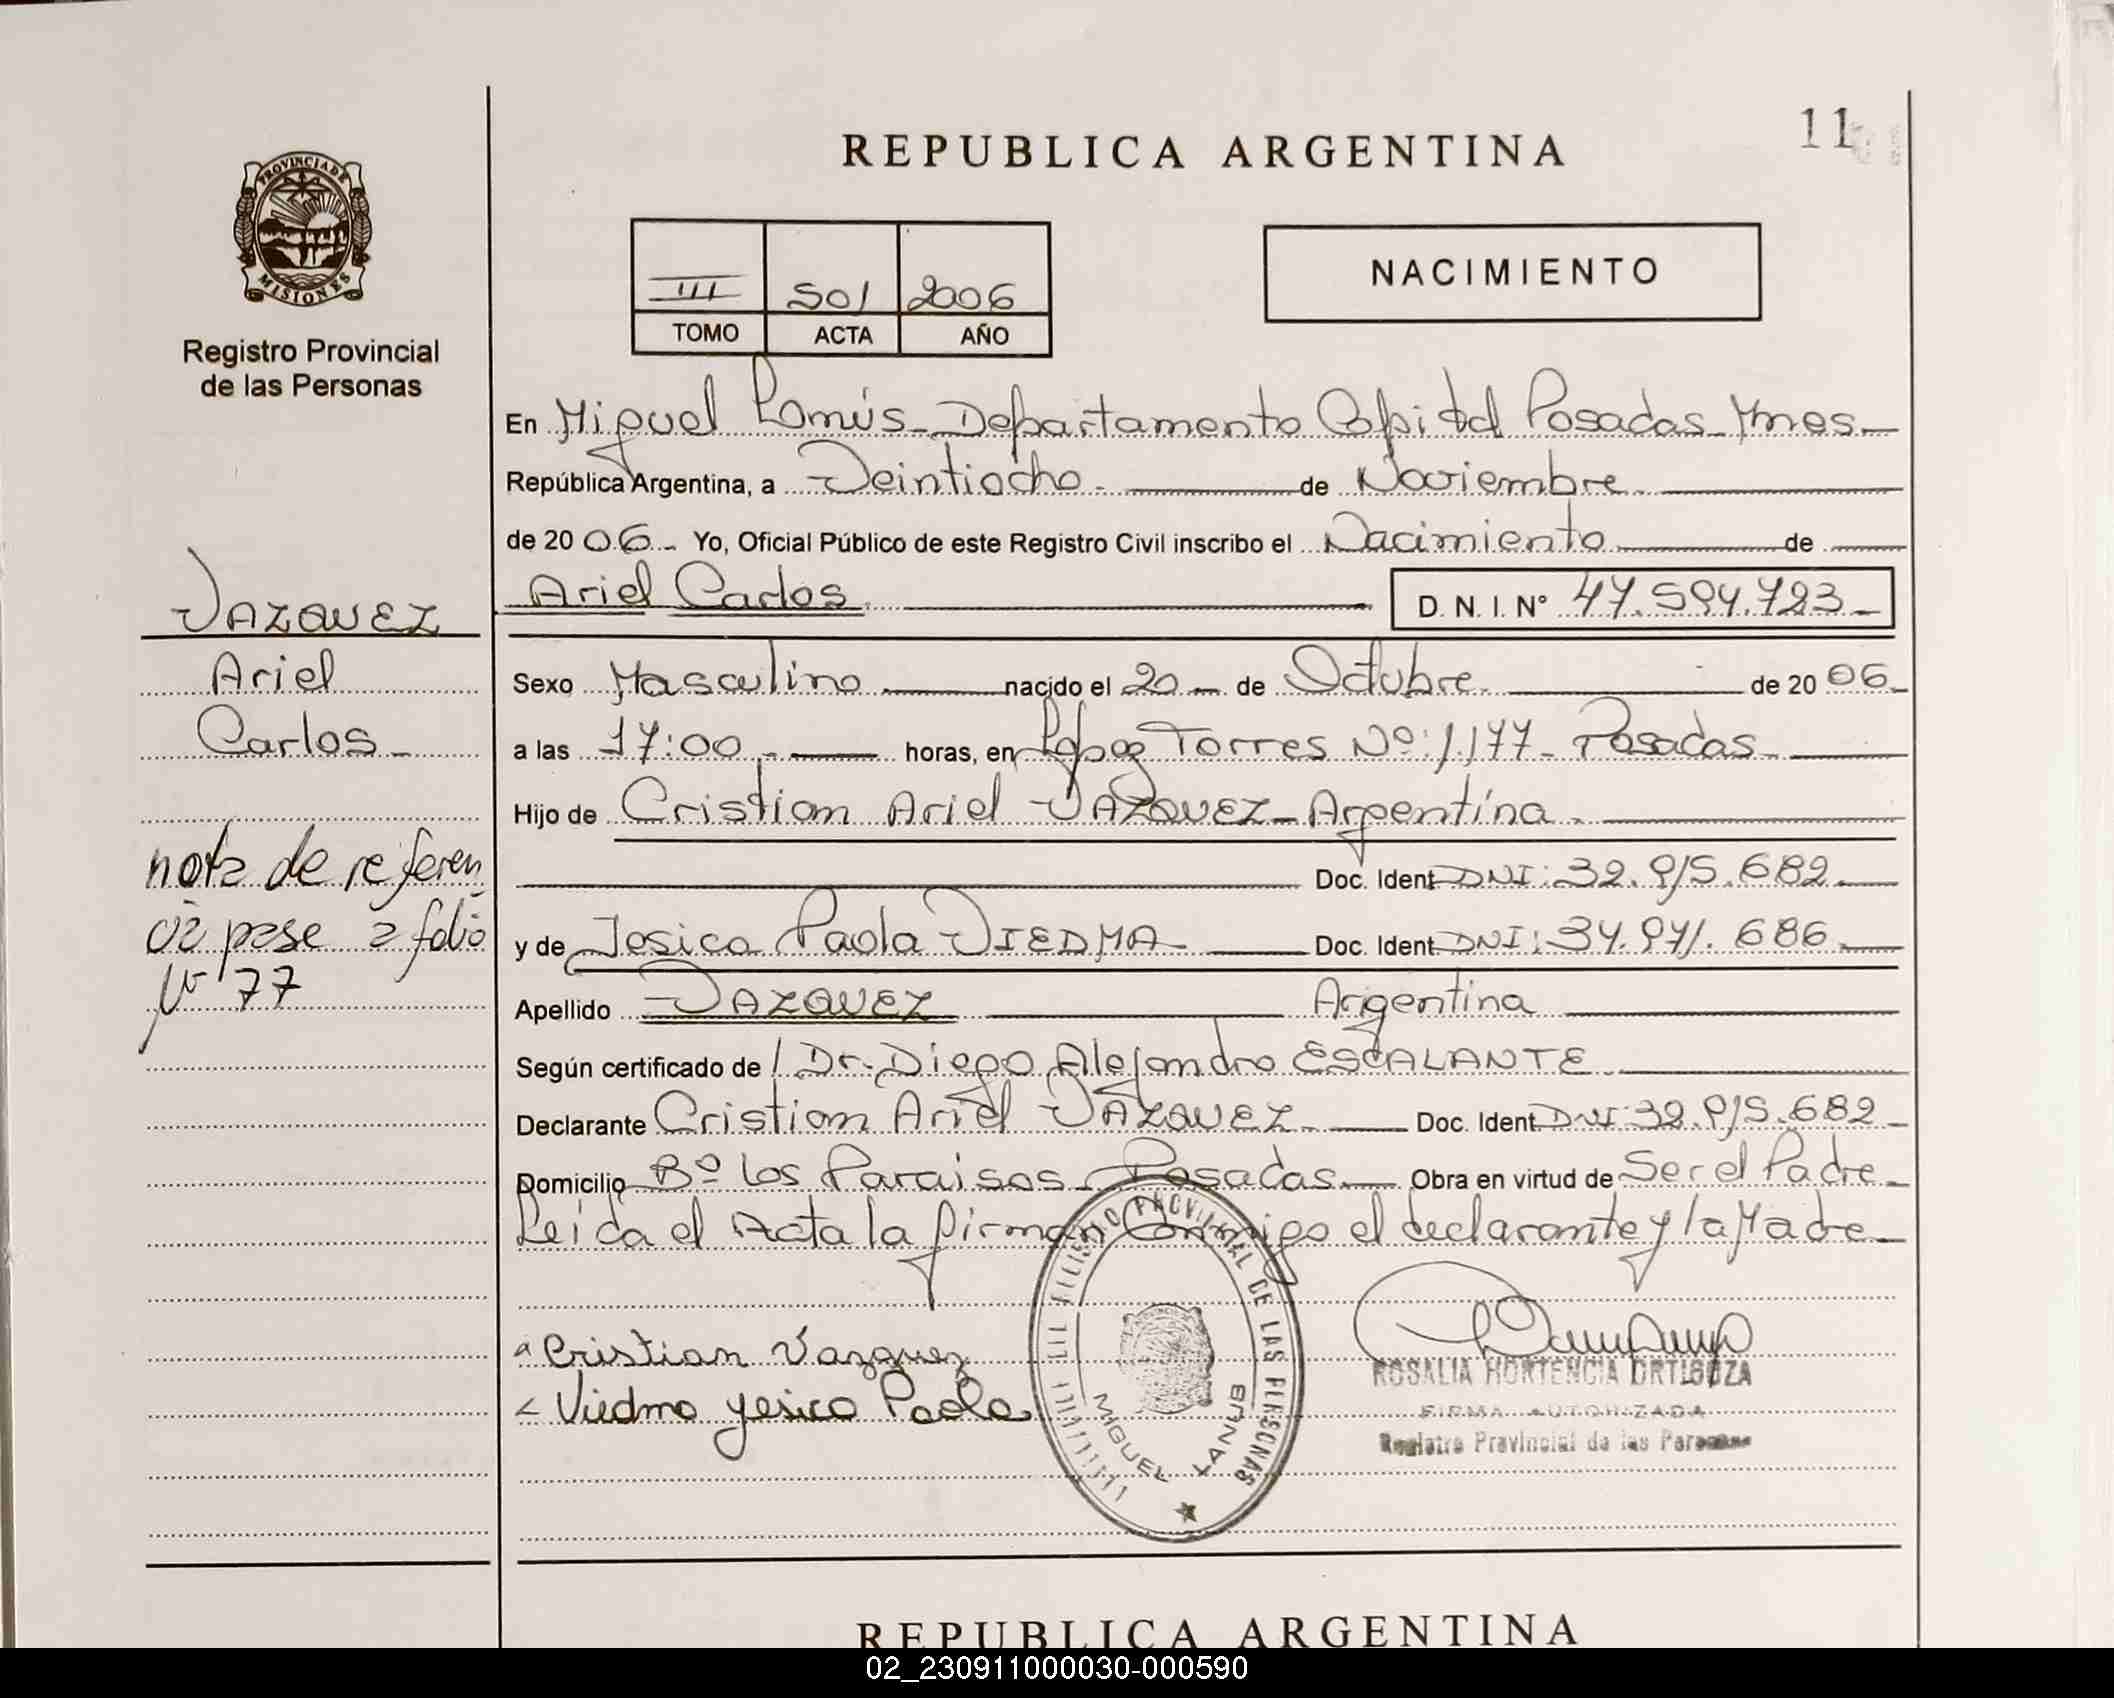 REPUBLICA ARGENTINA
11
PROVINCIA DE
MISIONES
Registro Provincial
de las Personas
III 501 2006
TOMO ACTA AÑO
NACIMIENTO
En Miguel Lanús - Departamento Capital Posadas - Mnes -
República Argentina, a Veintiocho - de Noviembre
de 2006 - Yo, Oficial Público de este Registro Civil inscribo el Nacimiento de
Ariel Carlos D. N. I. N° 47.594.723 -
VAZQUEZ
Ariel
Carlos -
nota de referen
cia pase a folio
Nº 77
Sexo Masculino nacido el 20 - de Octubre de 2006 -
a las 17:00 - horas, en López Torres Nº: 1.177 - Posadas -
Hijo de Cristian Ariel VAZQUEZ - Argentina -
Doc. Ident DNI: 32.915.682 -
y de Jesica Paola VIEDMA - Doc. Ident DNI: 34.971.686 -
Apellido VAZQUEZ Argentina
Según certificado de / Dr. Diego Alejandro ESCALANTE -
Declarante Cristian Ariel VAZQUEZ - Doc. Ident DNI: 32.915.682 -
Domicilio Bº Los Paraisos - Posadas - Obra en virtud de Ser el Padre -
Leída el Acta la firman Conmigo el declarante y la Madre -
Cristian Vazquez
Viedma Yesica Paola
PROVINCIAL DE LAS PERSONAS
MIGUEL LANUS
ROSALIA HORTENCIA ORTIGOZA
FIRMA AUTORIZADA
Registro Provincial de las Personas
REPUBLICA ARGENTINA
02_230911000030-000590